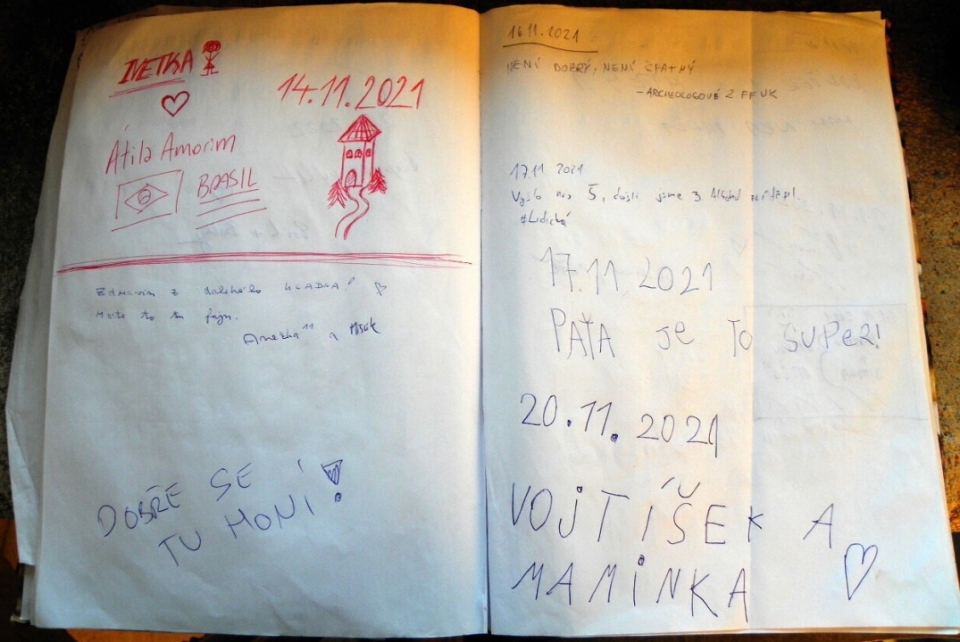 IVETKA
14.11.2021
Átila Amorim
BRASIL
Zdravím z dalekého KLADNA!
Máte to tu fajn.
Anežka a
DOBŘE SE
TU HONÍ!
16.11.2021
NENÍ DOBRÝ, NENÍ ŠPATNÝ
-ARCHEOLOGOVÉ Z FF UK
17.11 2021
Vyšlo nás 5, došli jsme 3.
17.11 2021
PAŤA je TO SUPeR!
20.11.2021
VOJTÍŠEK A
MAMiNKA